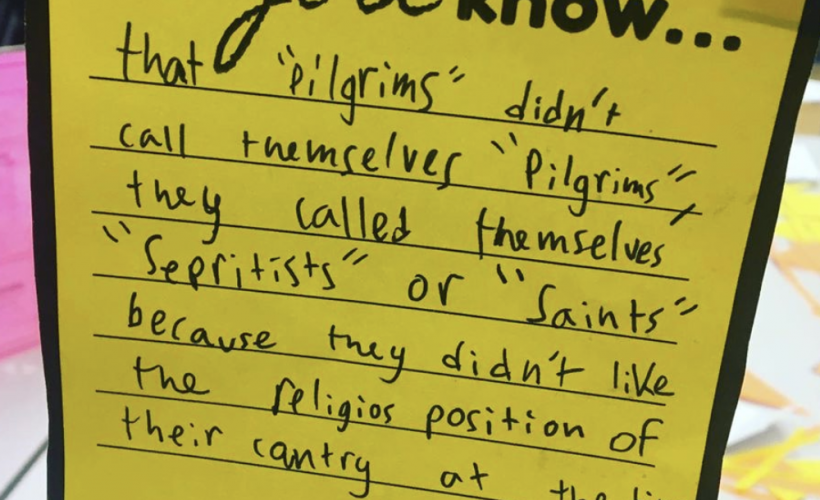 know...
that "pilgrims" didn't
call themselves "Pilgrims",
they called themselves
"Sepritists" or "Saints"
because they didn't like
the religios position of
their cantry at